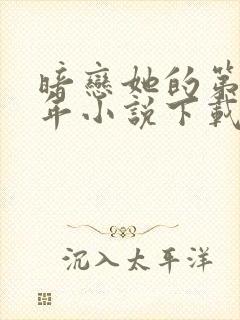 暗戀她的第
年小說下載
沉入太平洋